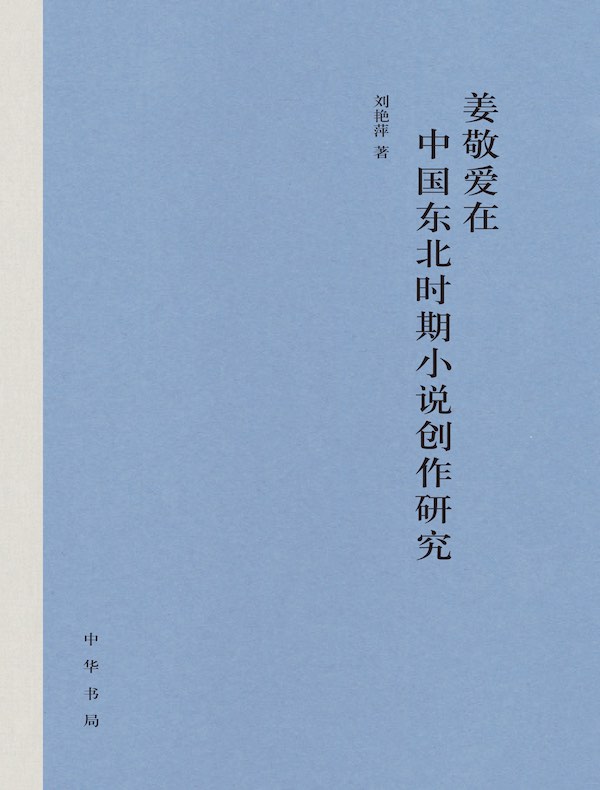 姜敬爱在
中国东北时期小说创作研究
刘艳萍 著
中华书局